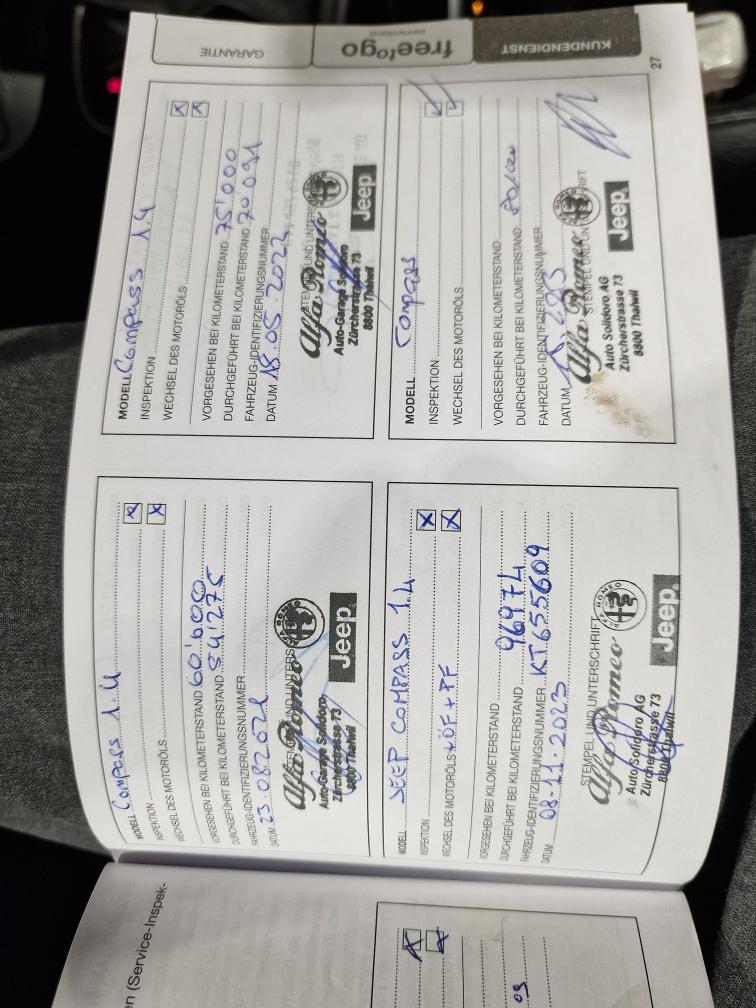 n (Service-Inspek-
MODELL Compass 1.4
INSPEKTION
WECHSEL DES MOTORÖLS
VORGESEHEN BEI KILOMETERSTAND 60'000
DURCHGEFÜHRT BEI KILOMETERSTAND 54'275
FAHRZEUG-IDENTIFIZIERUNGSNUMMER
DATUM 23.08.2021
Alfa Romeo
Auto-Garage Solidoro
Zürcherstrasse 73
8800 Thalwil
Jeep
MODELL JEEP COMPASS 1.4
INSPEKTION
WECHSEL DES MOTORÖLS +ÖF+PF
VORGESEHEN BEI KILOMETERSTAND
DURCHGEFÜHRT BEI KILOMETERSTAND 96974
FAHRZEUG-IDENTIFIZIERUNGSNUMMER KT655609
DATUM 08-11-2023
STEMPEL UND UNTERSCHRIFT
Alfa Romeo
Auto Solidoro AG
Zürcherstrasse 73
8800 Thalwil
Jeep
MODELL Compass 1.4
INSPEKTION
WECHSEL DES MOTORÖLS
VORGESEHEN BEI KILOMETERSTAND 75'000
DURCHGEFÜHRT BEI KILOMETERSTAND 70'091
FAHRZEUG-IDENTIFIZIERUNGSNUMMER
DATUM 18.05.2022
Alfa Romeo
Auto-Garage Solidoro
Zürcherstrasse 73
8800 Thalwil
Jeep
MODELL Compass
INSPEKTION
WECHSEL DES MOTORÖLS
VORGESEHEN BEI KILOMETERSTAND
DURCHGEFÜHRT BEI KILOMETERSTAND
FAHRZEUG-IDENTIFIZIERUNGSNUMMER
DATUM
STEMPEL UND UNTERSCHRIFT
Alfa Romeo
Auto Solidoro AG
Zürcherstrasse 73
8800 Thalwil
Jeep
GARANTIE
freetogo
pannendienst
KUNDENDIENST
27